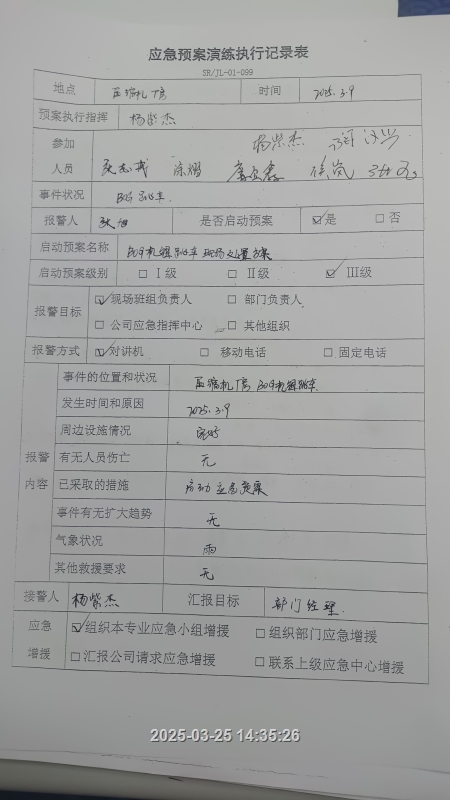 应急预案演练执行记录表
SR/JL-01-099
地点 压缩机厂房 时间 2025.3.9
预案执行指挥 杨紫杰
参加人员 杨紫杰
事件状况
报警人 是否启动预案 ☑是 □否
启动预案名称 机组跳车现场处置方案
启动预案级别 □Ⅰ级 □Ⅱ级 ☑Ⅲ级
报警目标 ☑现场班组负责人 □部门负责人
□公司应急指挥中心 □其他组织
报警方式 ☑对讲机 □移动电话 □固定电话
报警内容
事件的位置和状况 压缩机厂房 机组跳车
发生时间和原因 2025.3.9
周边设施情况 完好
有无人员伤亡 无
已采取的措施 启动应急预案
事件有无扩大趋势 无
气象状况 雨
其他救援要求 无
接警人 杨紫杰 汇报目标 部门经理
应急增援 ☑组织本专业应急小组增援 □组织部门应急增援
□汇报公司请求应急增援 □联系上级应急中心增援
2025-03-25 14:35:26